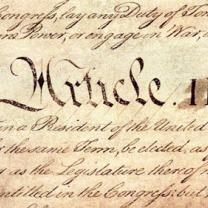 Congress, lay any Duty of Ton
Power, or engage in War,
Article. II
in a President of the United
the same Term, be elected, as
as the Legislature thereof m
ntitled in the Congress: but